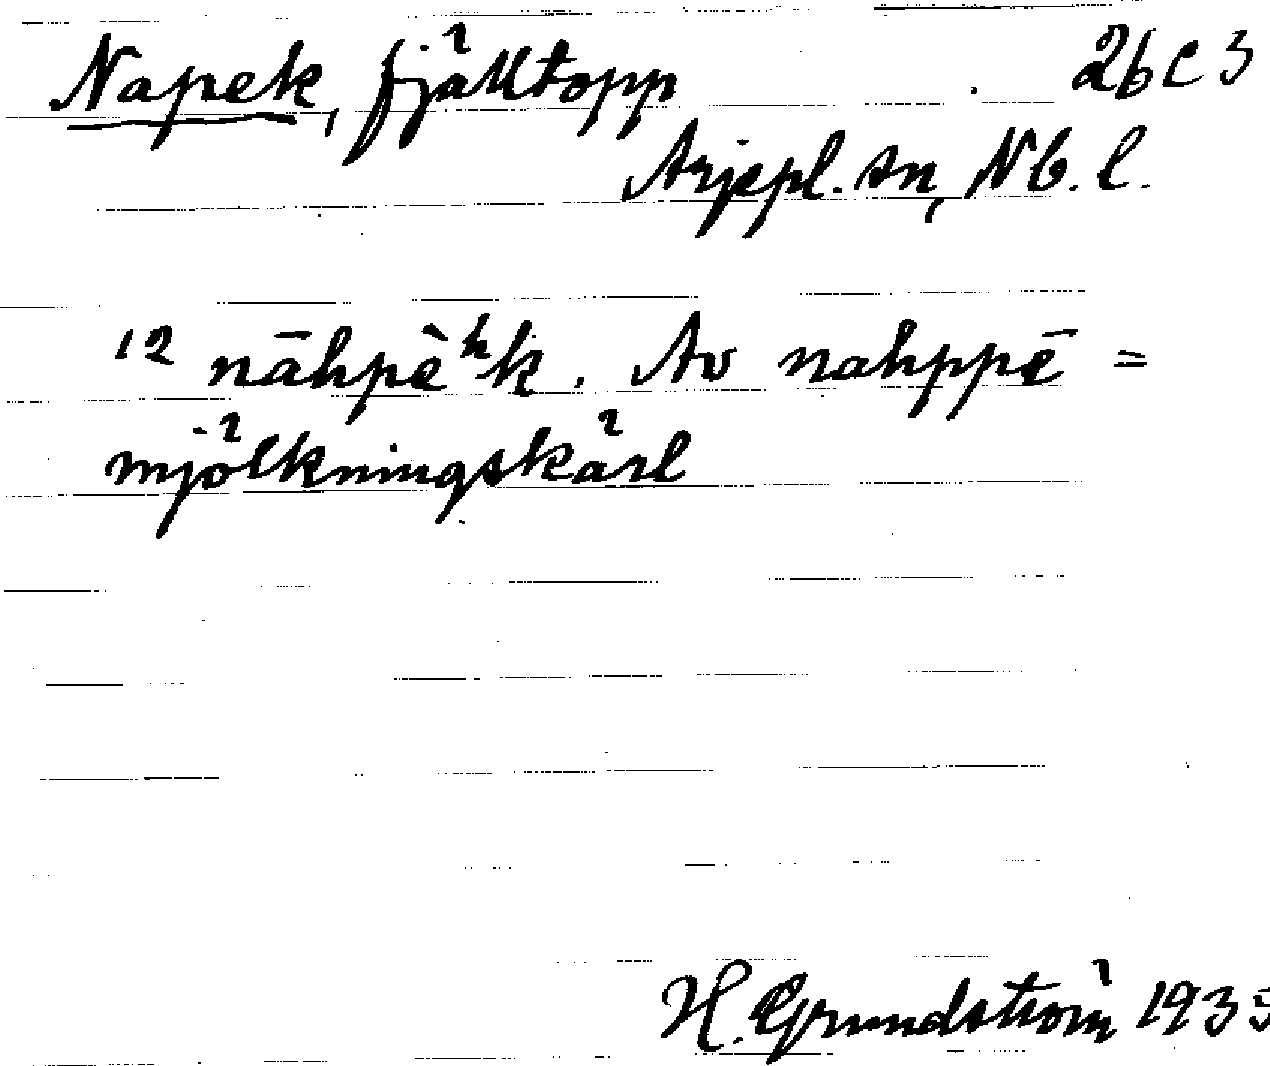 Napek, fjälltopp 26 C 3
Arjepl. sn, Nb. l.
12 nāhpèʰk. Av nahppē =
mjölkningskärl
H. Grundström 1935